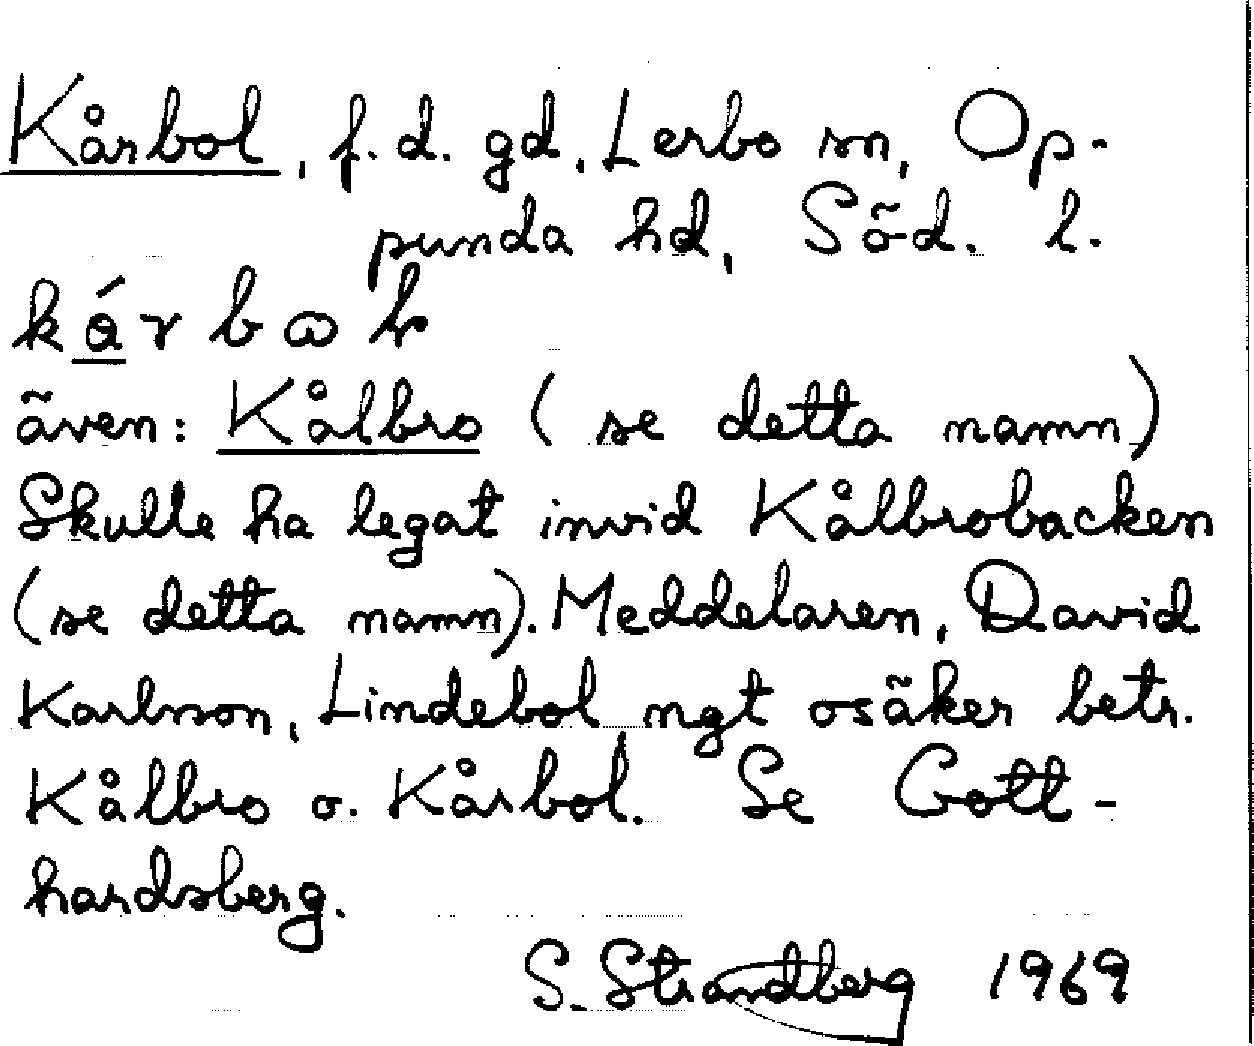 Kårbol, f.d. gd, Lerbo sn, Op-
punda hd, Söd. l.
även: Kålbro (se detta namn)
Skulle ha legat invid Kålbrobacken
(se detta namn). Meddelaren, David
Karlsson, Lindebol ngt osäker betr.
Kålbro o. Kårbol. Se Gott-
hardsberg.
S. Strandberg 1969